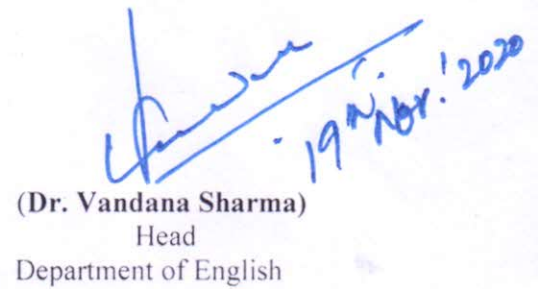 19th Nov. 2020
(Dr. Vandana Sharma)
Head
Department of English